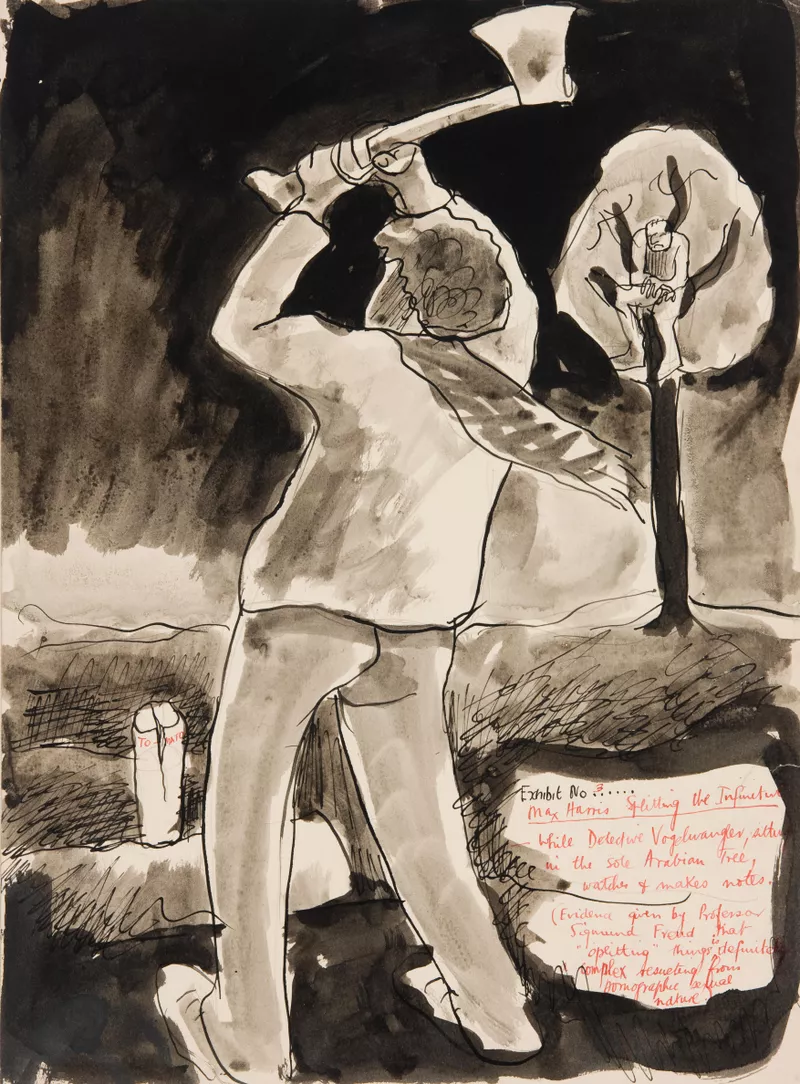 TO -
Exhibit No 3.....
Max Harris Splitting the Infinitive
- While Detective Vogelwangler, 
in the sole Arabian Tree,
watches & makes notes.
(Evidence given by Professor
Sigmund Freud that
"splitting" things is definitely
complex resulting from
pornographic sexual
nature